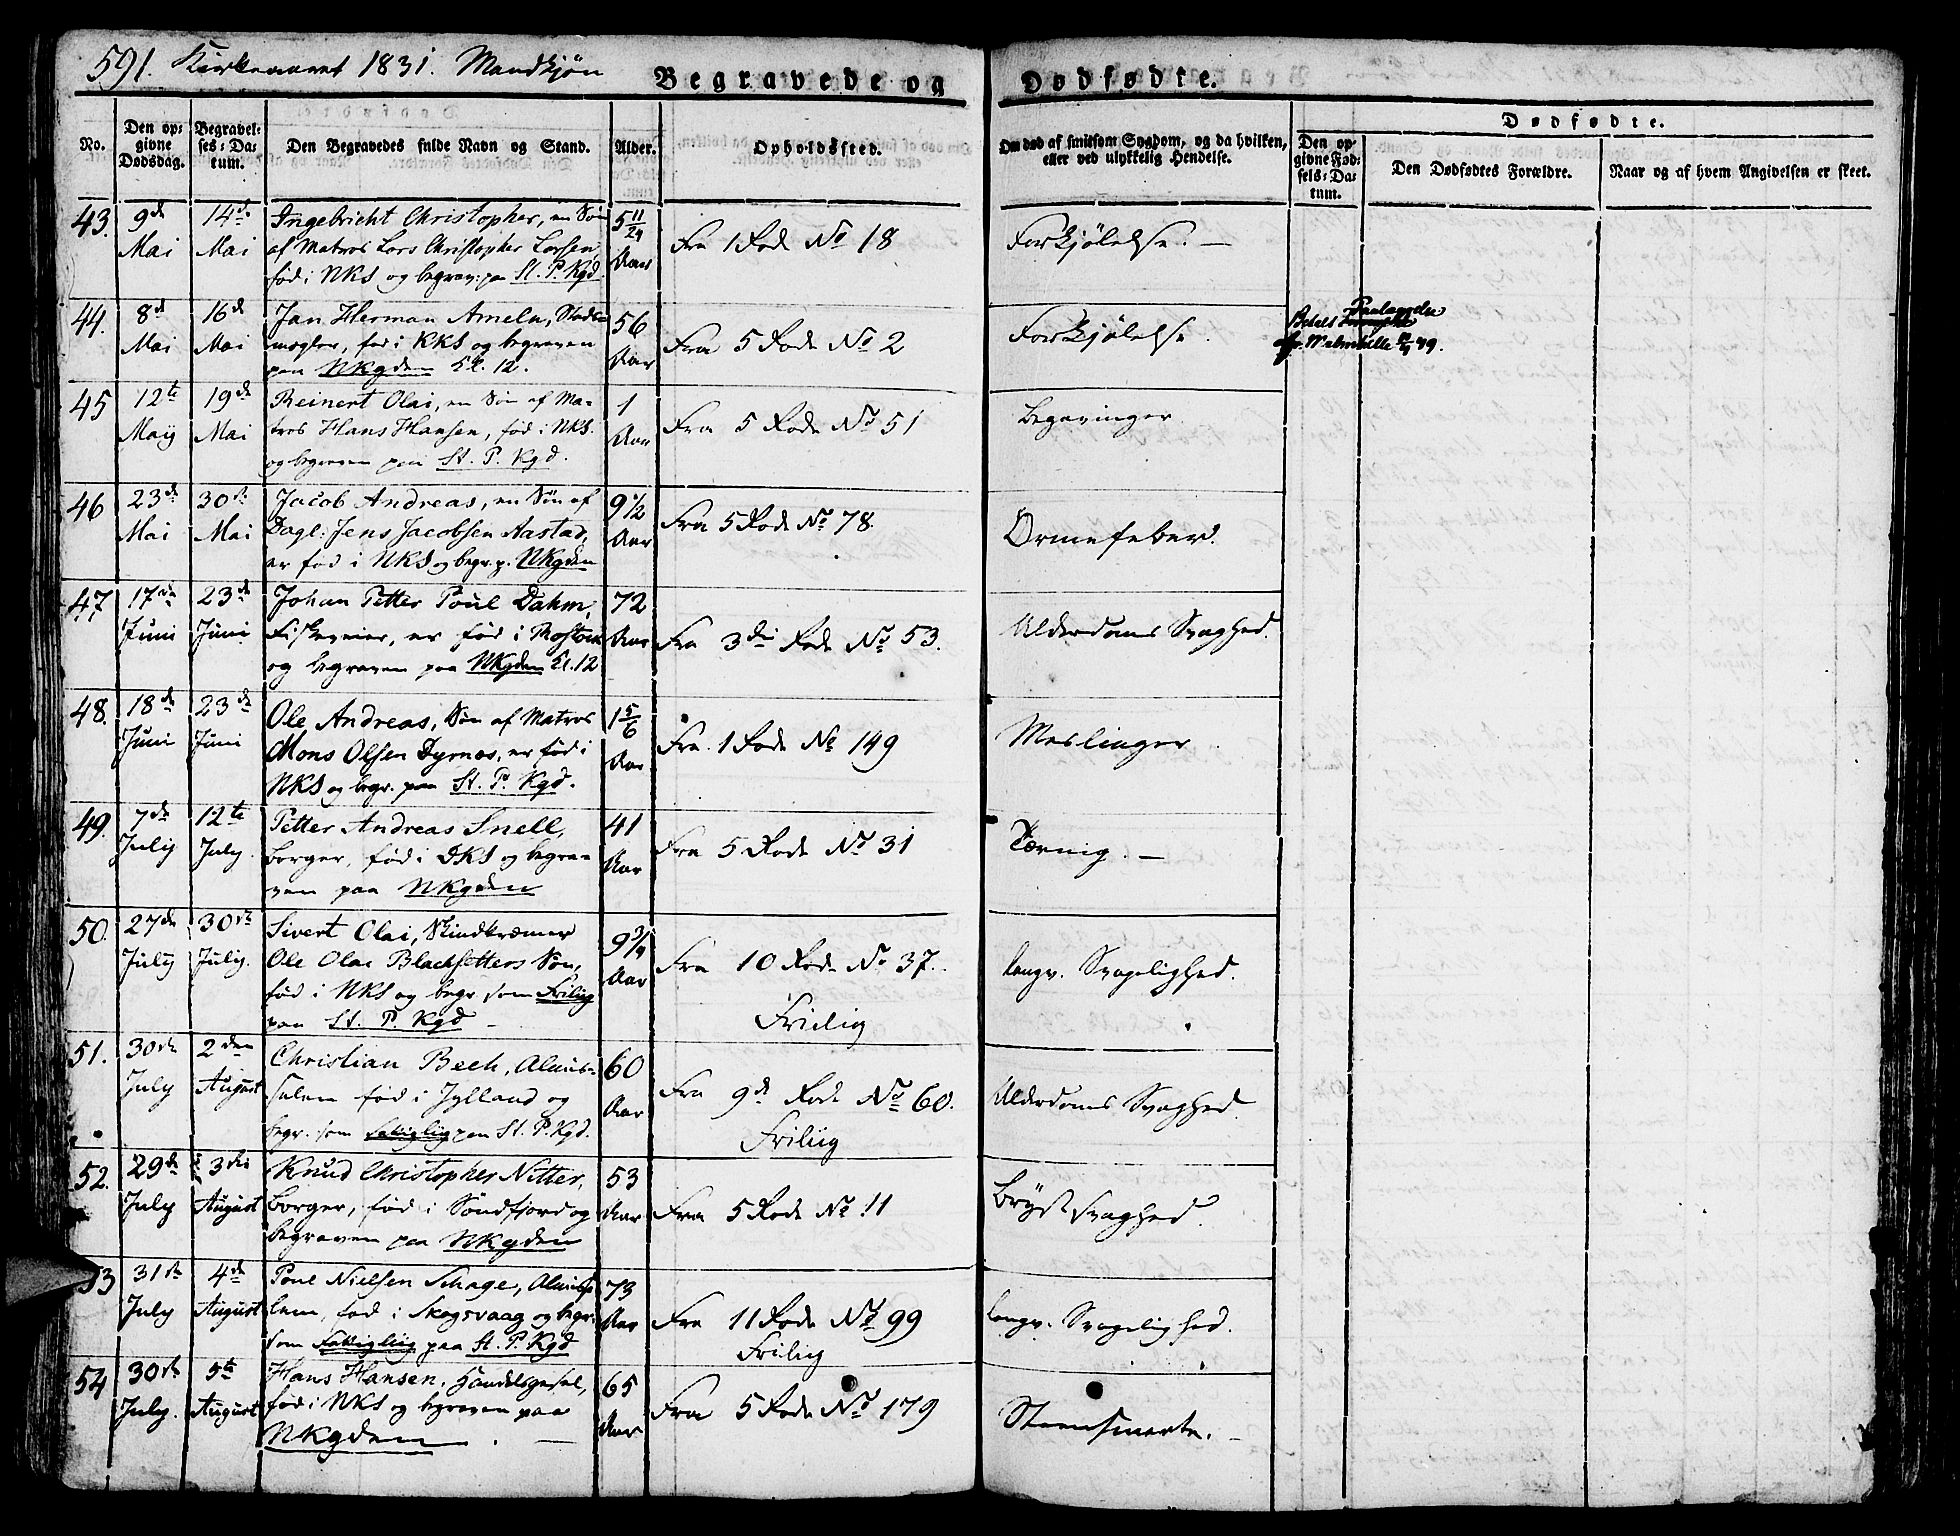 591. Kirkeaaret 1831. Mandkjøn
Begravede og Dødfødte.
No.
Den opgivne Dødsdag.
Begravelses-Datum.
Den Begravedes fulde Navn og Stand.
Alder.
Opholdssted.
Om død af smitsom Sygdom, og da hvilken, eller ved ulykkelig Hendelse.
Dødfødte.
Den opgivne Fødsels-Datum.
Den Dødfødtes Forældre.
Naar og af hvem Angivelsen er skeet.
43. 9de Mai 14de Mai
Ingebricht Christopher, en Søn
af Matros Lars Christopher Larsen,
fød i NKS og begrav: paa St. P. Kgd.
5 11/24 Aar
Fra 1 Rode No 18
Forkjølelse. —
44. 8de Mai 16de Mai
Jan Herman Ameln, Stads-
mægler, fød i KKS og begraven
paa NKgden Kl. 12.
56 Aar
Fra 5 Rode No 2
Forkjølelse.
45 12te Maij 19de Mai
Reinert Olai, en Søn af Ma-
tros Hans Hansen, fød i NKS.
og begraven paa St. P. Kgd.
1 Aar
Fra 5 Rode No 51
Begavinger.
46 23de Mai 30te Mai
Jacob Andreas, en Søn af
Dagl: Jens Jacobsen Aastad,
er fød i NKS og begr. p. NKgden
9 1/2 Aar
Fra 5 Rode No 78.
Ormefeber.
47 17de Juni 23de Juni
Johan Petter Poul Dahm,
Fiskeveier, er fød i
og begraven paa NKgden Kl. 12
72 Aar
Fra 3die Rode No 53.
Alderdoms Svaghed.
48. 18de Juni 23de Juni
Ole Andreas, Søn af Matros
Mons Olsen Dyrnes, er fød i
NKS og begr. paa St. P. Kgd.
1 5/6 Aar
Fra 1 Rode No 149
Meslinger
49. 7de Julij 12te July.
Petter Andreas Snell,
Borger, fød i DKS og begra-
ven paa NKgden
41 Aar
Fra 5 Rode No 31
Tærnig. —
50. 27de Julij 30te Julij.
Sivert Olai, Skindkræmer
Ole Olai Blachsetters Søn,
fød i NKS og begr. som Friliig
paa St. P. Kgd —
9 3/4 Aar
Fra 10 Rode No 37.
Friliig
langv. Svagelighed.
51. 30te July 2den August
Christian Beck, Almis-
selem fød i Jylland og
begr. som paa St. P. Kgd.
60 Aar
Fra 9de Rode No 60.
Friliig
Alderdoms Svaghed.
52. 29de July 3die August
Knud Christopher Nitter,
Borger, fød i Søndfjord og
begraven paa NKgden
53 Aar
Fra 5 Rode No 11
Brystsvaghed.
53 31te July 4de August
Poul Nielsen Schage, Almisse-
lem, fød i Skogsvaag og begr.
som paa St. P. Kgd
73 Aar
Fra 11 Rode No 99
Friliig
langv. Svagelighed.
54 30te July. 5te August
Hans Hansen, Handelsgesel,
fød i NKS og begraven paa
NKgden. —
65 Aar
Fra 5 Rode No 179
Steensmerte. —